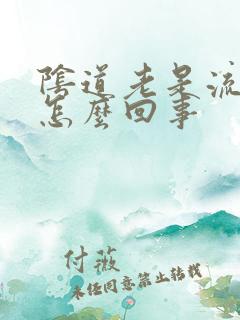 陰道老是流
怎麼回事
付薇
未经同意禁止转载